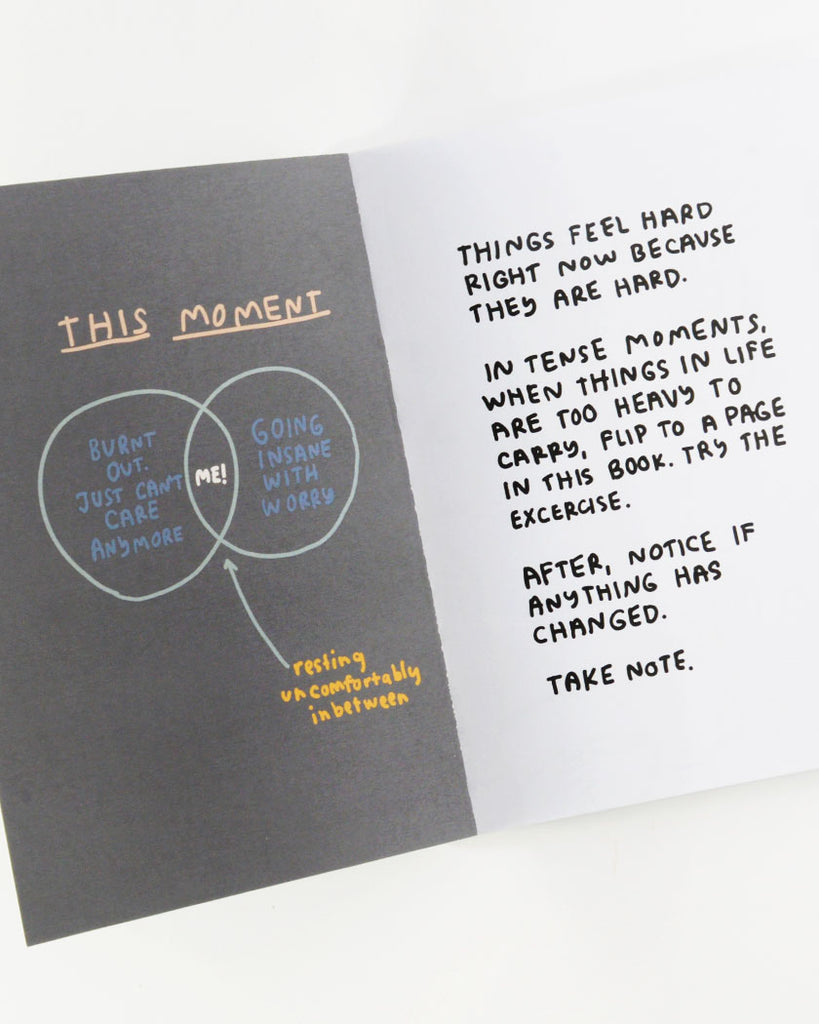 THIS MOMENT
BURNT
OUT.
JUST CAN'T
CARE
ANYMORE
ME!
GOING
INSANE
WITH
WORRY
resting
uncomfortably
inbetween
THINGS FEEL HARD
RIGHT NOW BECAUSE
THEY ARE HARD.
IN TENSE MOMENTS,
WHEN THINGS IN LIFE
ARE TOO HEAVY TO
CARRY, FLIP TO A PAGE
IN THIS BOOK. TRY THE
EXCERCISE.
AFTER, NOTICE IF
ANYTHING HAS
CHANGED.
TAKE NOTE.